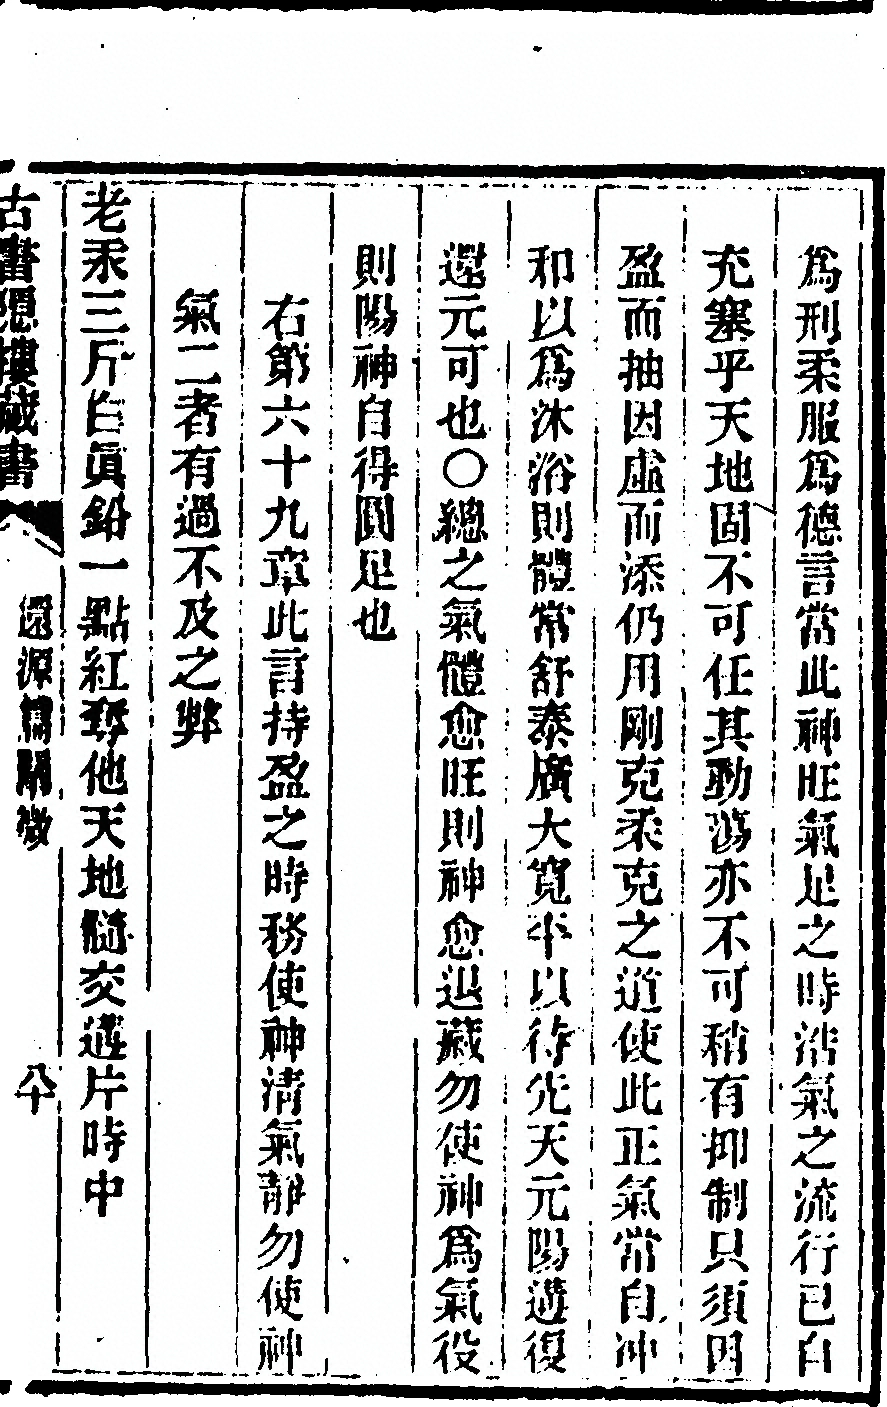 為刑柔服為德言當此神旺氣足之時浩氣之流行已自
充塞乎天地固不可任其動蕩亦不可稍有抑制只須因
盈而抽因虛而添仍用剛克柔克之道使此正氣常自冲
和以為沐浴則體常舒泰廣大寬平以待先天元陽遘復
還元可也〇總之氣體愈旺則神愈退藏勿使神為氣役
則陽神自得圓足也
右第六十九章此言持盈之時務使神清氣靜勿使神
氣二者有過不及之弊
老汞三斤白眞鉛一點紅奪他天地髓交遘片時中
古書隱樓藏書
還源篇闡微
八十